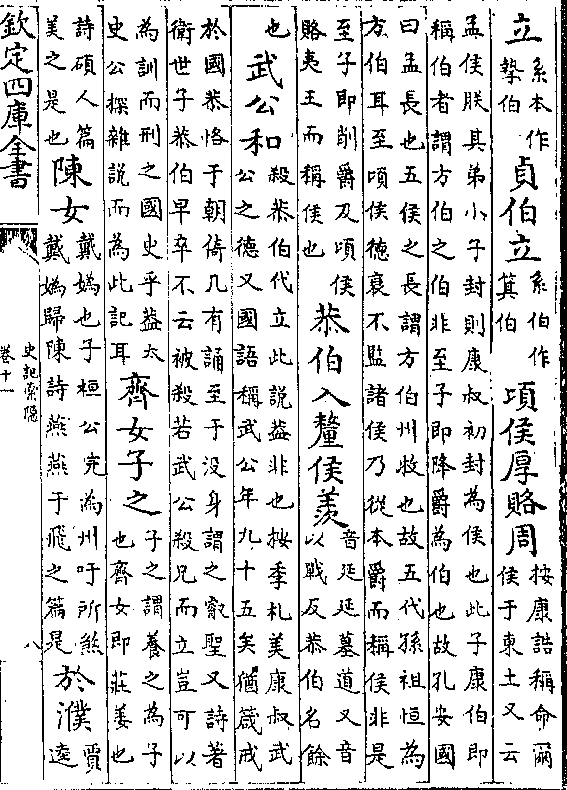 立系本作摯伯貞伯立系伯作箕伯項侯厚賂周按康誥稱命爾侯于東土又云
孟侯朕其弟小子封則康叔初封為侯也此子康伯即
稱伯者謂方伯之伯非至子即降爵為伯也故孔安國
曰孟長也五侯之長謂方伯州牧也故五代孫祖恒為
方伯耳至頃侯德衰不監諸侯乃從本爵而稱侯非是
至子即削爵及頃侯賂夷王而稱侯也恭伯入釐侯羨音延延墓道又音以戰反恭伯名餘
也武公和殺恭伯代立此說葢非也按季札美康叔武公之德又國語稱武公年九十五矣猶箴戒
於國恭恪于朝倚几有誦至于没身謂之叡聖又詩著
衛世子恭伯早卒不云被殺若武公殺兄而立豈可以
為訓而刑之國史乎葢太史公探雜說而為此記耳齊女子之子之謂養之為子也齊女即莊姜也
詩碩人篇美之是也陳女戴媯也子桓公完為州吁所煞戴媯歸陳詩燕燕于飛之篇是於濮賈逵
欽定四庫全書
史記索隱
卷十一
八